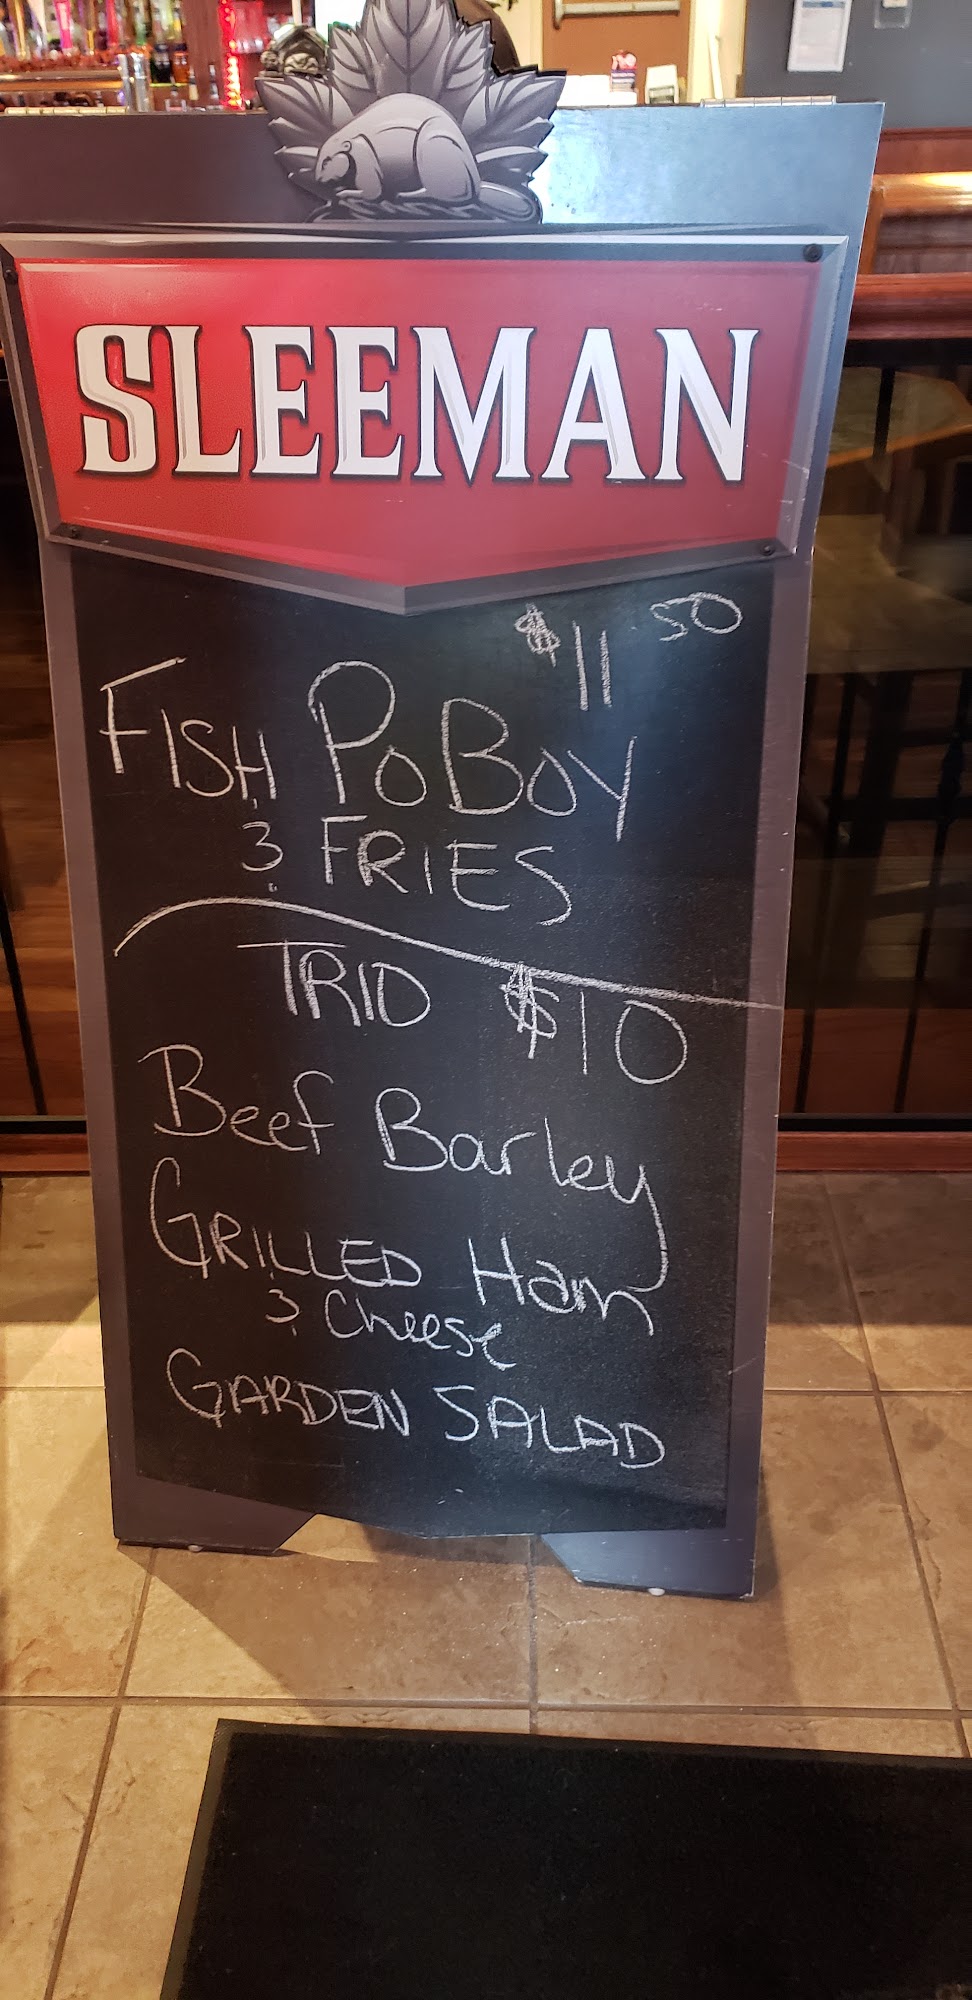 SLEEMAN
$11 50
FISH PO BOY
& FRIES
TRIO $10
Beef Barley
GRILLED Ham
& Cheese
GARDEN SALAD